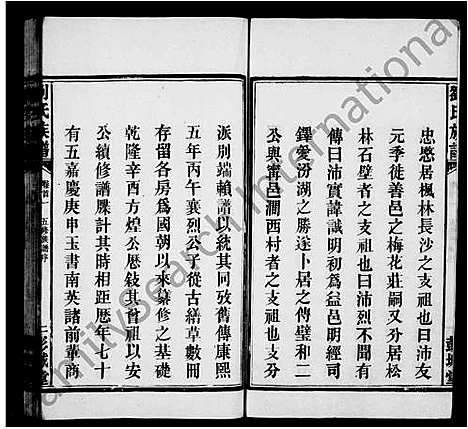 劉氏族譜
彭城堂
忠愍居楓林長沙之支祖也曰沛友
元季徙善邑之梅花莊嗣又外居松
林石壁者之支祖也曰沛烈不聞有
傳曰沛實諱誠明初為益邑明經司
鐸愛汾湖之勝遂卜居之傳璧和二
公與甯邑澗西村者之支祖也支分
派別端賴譜以統其同攷舊傳康熙
五年丙午襄烈公于從古繕草數冊
存留各房為國朝以來纂修之基礎
乾隆辛酉方煌公厯敍其首祖以安
公續修譜牒計其時相距厯年七十
有五嘉慶庚申玉書南英諸前輩商
劉氏族譜
卷首
五修族譜序
二
彭城堂
FamilySearch International